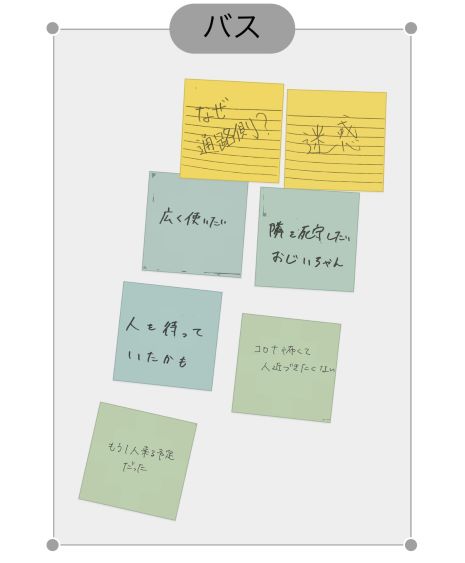 バス
なぜ
通路側?
迷惑
広く使いたい
隣を死守したい
おじいちゃん
人を待って
いたかも
コロナが怖くて
人近づきたくない
もう1人来る予定
だった